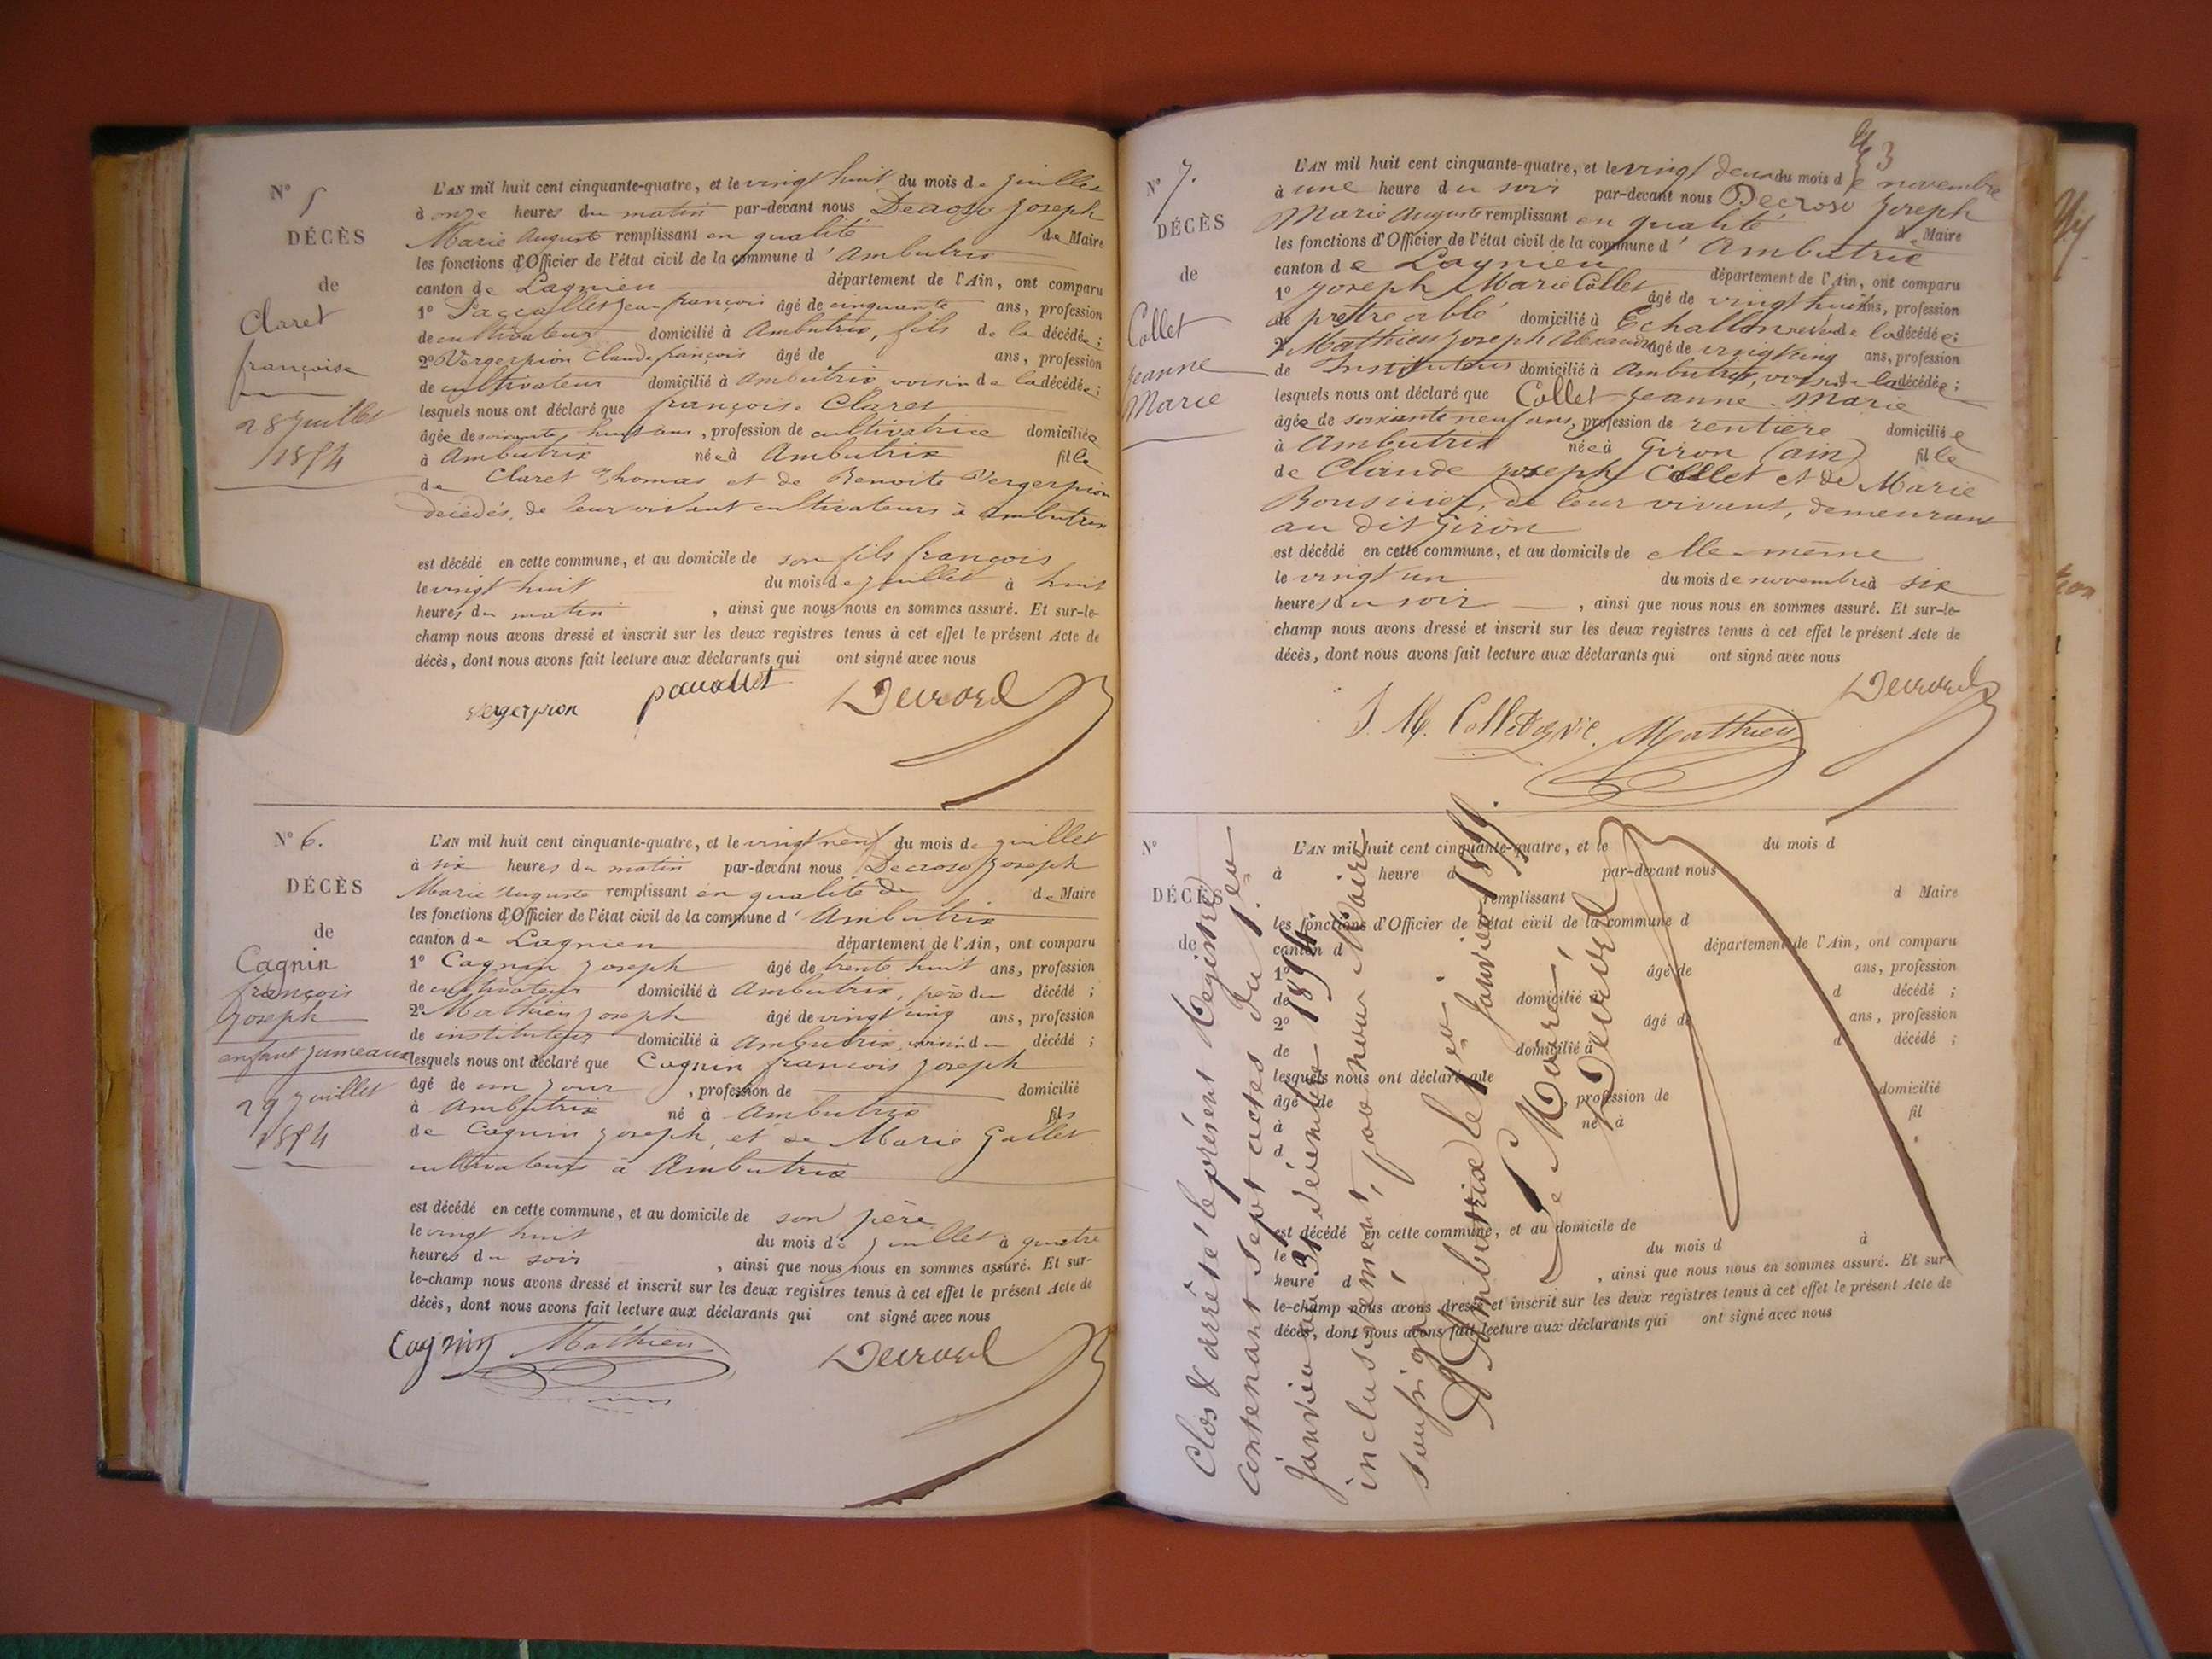 N° 5
DÉCÈS
de
Claret
françoise
28 juillet
1854
L'AN mil huit cent cinquante-quatre, et le vingt huit du mois de juillet
à onze heures du matin par-devant nous Decroso Joseph
Marie Auguste remplissant en qualité de Maire
les fonctions d'Officier de l'état civil de la commune d'Ambutrix
canton de Lagnieu département de l'Ain, ont comparu
1° Jean françois âgé de cinquante ans, profession
de cultivateur domicilié à Ambutrix, fils de la décédée;
2° Vergerpion Claude françois âgé de ans, profession
de cultivateur domicilié à Ambutrix voisin de la décédée;
lesquels nous ont déclaré que françoise Claret
âgée de soixante huit ans, profession de cultivatrice domiciliée
à Ambutrix née à Ambutrix fille
de Claret Thomas et de Benoite Vergerpion
décédés, de leur vivant cultivateurs à Ambutrix
est décédé en cette commune, et au domicile de son fils françois
le vingt huit du mois de juillet à huit
heures du matin, ainsi que nous nous en sommes assuré. Et sur-le-
champ nous avons dressé et inscrit sur les deux registres tenus à cet effet le présent Acte de
décès, dont nous avons fait lecture aux déclarants qui ont signé avec nous
Vergerpion
N° 6.
DÉCÈS
de
Cagnin
françois
Joseph
enfant jumeaux
29 juillet
1854
L'AN mil huit cent cinquante-quatre, et le vingt neuf du mois de juillet
à six heures du matin par-devant nous Decroso Joseph
Marie Auguste remplissant en qualité de de Maire
les fonctions d'Officier de l'état civil de la commune d'Ambutrix
canton de Lagnieu département de l'Ain, ont comparu
1° Cagnin Joseph âgé de trente huit ans, profession
de cultivateur domicilié à Ambutrix, père du décédé;
2° Mathieu Joseph âgé de vingt cinq ans, profession
de instituteur domicilié à Ambutrix, voisin du décédé;
lesquels nous ont déclaré que Cagnin francois Joseph
âgé de un jour, profession de domicilié
à Ambutrix né à Ambutrix fils
de Cagnin Joseph, et de Marie Gallet
cultivateurs à Ambutrix
est décédé en cette commune, et au domicile de son père
le vingt huit du mois de juillet à quatre
heures du soir, ainsi que nous nous en sommes assuré. Et sur-
le-champ nous avons dressé et inscrit sur les deux registres tenus à cet effet le présent Acte de
décès, dont nous avons fait lecture aux déclarants qui ont signé avec nous
Cagnin Mathieu
N° 7.
DÉCÈS
de
Collet
Jeanne
Marie
L'AN mil huit cent cinquante-quatre, et le vingt deux du mois de novembre
à une heure du soir par-devant nous Decroso Joseph
Marie Auguste remplissant en qualité de Maire
les fonctions d'Officier de l'état civil de la commune d'Ambutrix
canton de Lagnieu département de l'Ain, ont comparu
1° Joseph Marie Collet âgé de vingt huit ans, profession
de prêtre abbé domicilié à Echallon neveu de la décédée;
2° Mathieu Joseph Alexandre âgé de vingt cinq ans, profession
de Instituteur domicilié à Ambutrix, voisin de la décédée;
lesquels nous ont déclaré que Collet Jeanne Marie
âgée de soixante neuf ans, profession de rentière domiciliée
à Ambutrix née à Giron (ain) fille
de Claude joseph Collet et de Marie
de leur vivant, demeurant
au dit Giron
est décédé en cette commune, et au domicile de elle-même
le vingt un du mois de novembre à six
heures du soir, ainsi que nous nous en sommes assuré. Et sur-le-
champ nous avons dressé et inscrit sur les deux registres tenus à cet effet le présent Acte de
décès, dont nous avons fait lecture aux déclarants qui ont signé avec nous
Mathieu
N°
DÉCÈS
de
L'AN mil huit cent cinquante-quatre, et le du mois d
à heure d par-devant nous
remplissant d Maire
les fonctions d'Officier de l'état civil de la commune d
canton d département de l'Ain, ont comparu
1° âgé de ans, profession
de domicilié à d décédé;
2° âgé de ans, profession
de domicilié à d décédé;
lesquels nous ont déclaré que
âgé de, profession de domicilié
à né à fil
d
est décédé en cette commune, et au domicile de
le du mois d à
heure d, ainsi que nous nous en sommes assuré. Et sur-
le-champ nous avons dressé et inscrit sur les deux registres tenus à cet effet le présent Acte de
décès, dont nous avons fait lecture aux déclarants qui ont signé avec nous
Clos & arrêté le présent Registre
contenant sept actes du 1.er
janvier au 31 décembre 1854
inclusivement, par nous Maire
soussigné,
Ambutrix le 1.er janvier 1855.
Le Maire,